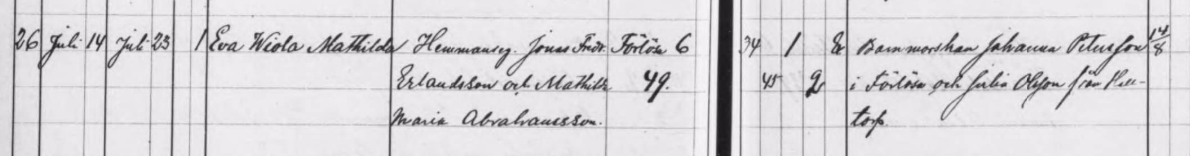 26 Juli 14 Juli 23 1 Eva Wiola Mathilda Hemmanseg. Jonas Fridr. Förlösa 6 34 1 E Barnmorskan Johanna Petersson 14/8
Erlandsson och Mathilda 49. 45 2 i Förlösa och Julia Olsson från Hult-
Maria Abrahamsson. torp.